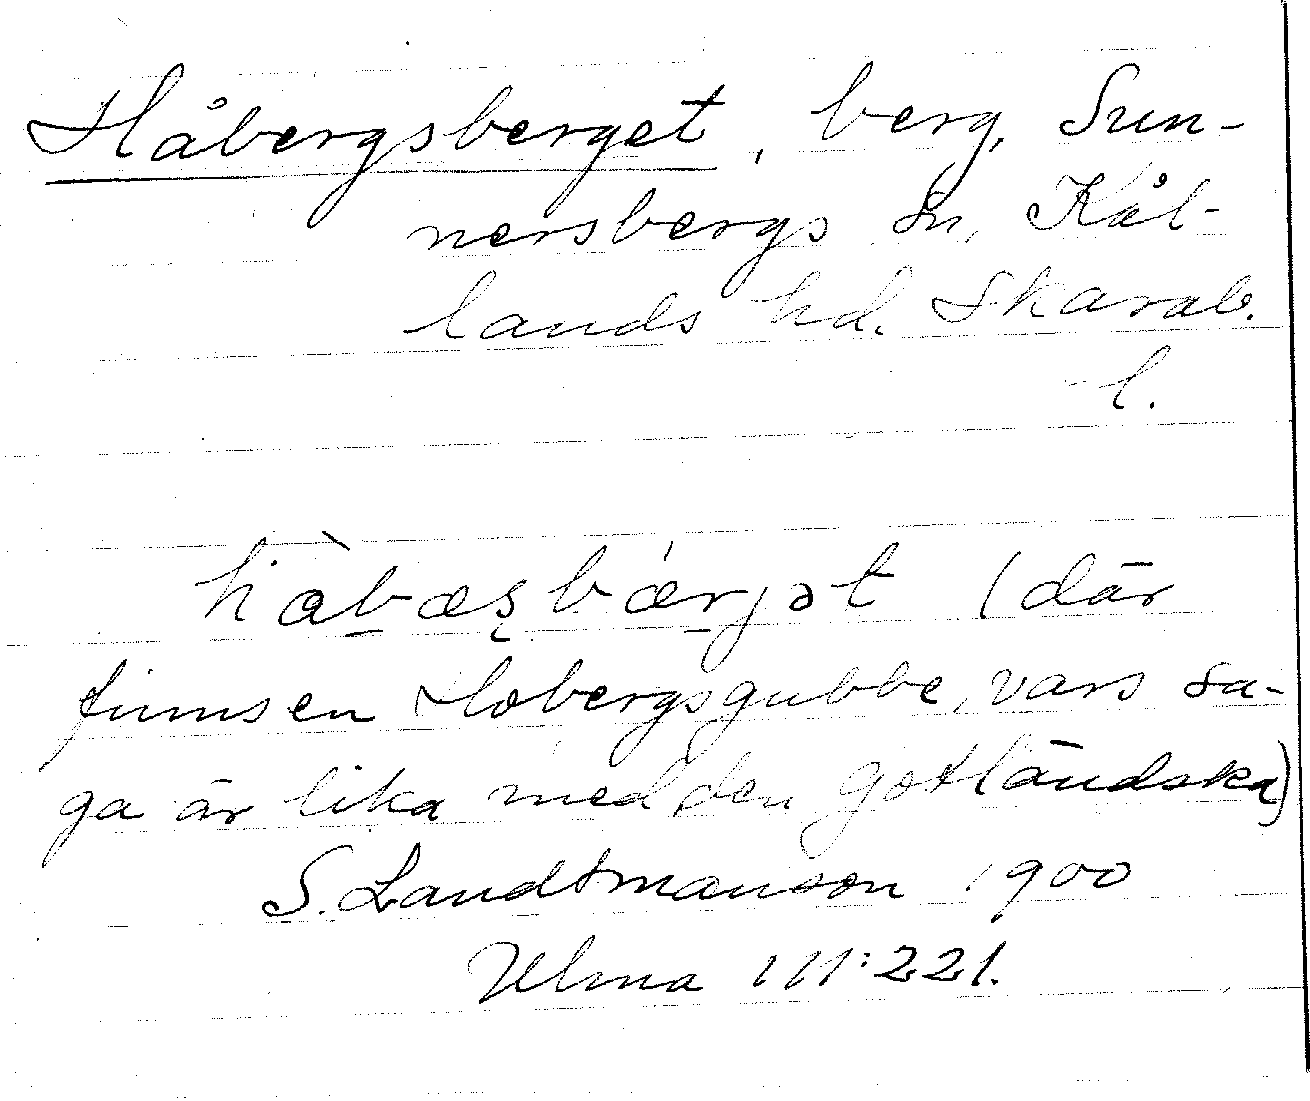 Håbergsberget, berg, Sun-
nersbergs sn, Kål-
lands hd. Skarab.
l.
hàbæʂbǽrjət (där
finns en Hobergsgubbe, vars sa-
ga är lika med den gotländska)
S. Landtmanson 1900
Ulma 111:221.